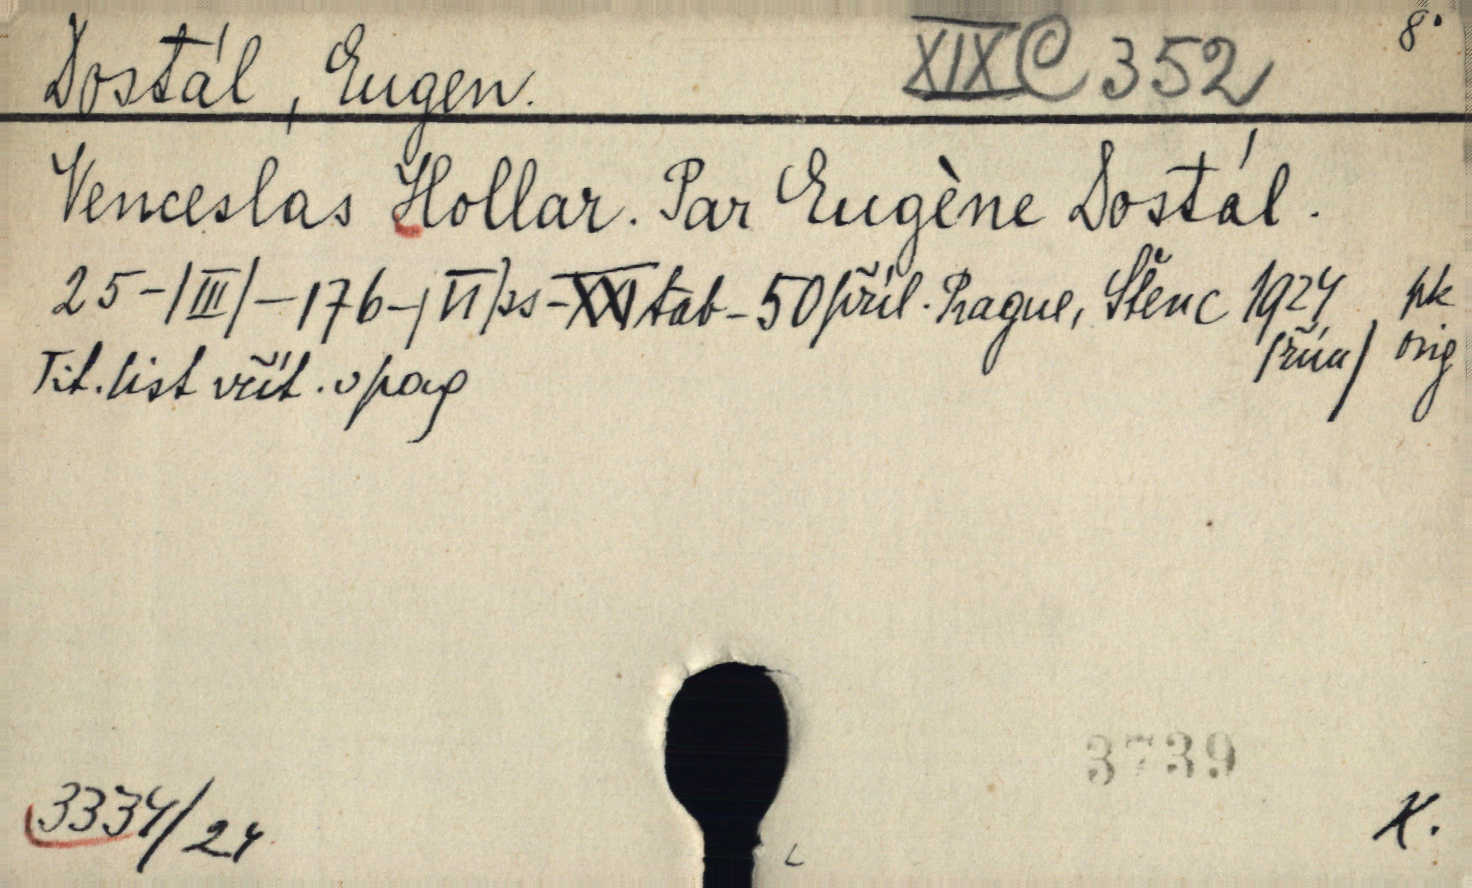 Dostál, Eugen. XIX C 352 8°
Venceslas Hollar. Par Eugène Dostál.
25-/III/-176-/VI/ss-XXI tab-50 příl. Prague, Štenc 1924 pk
/říj/ orig
Tit. list vřít. v pag
3739
3334/24 K.